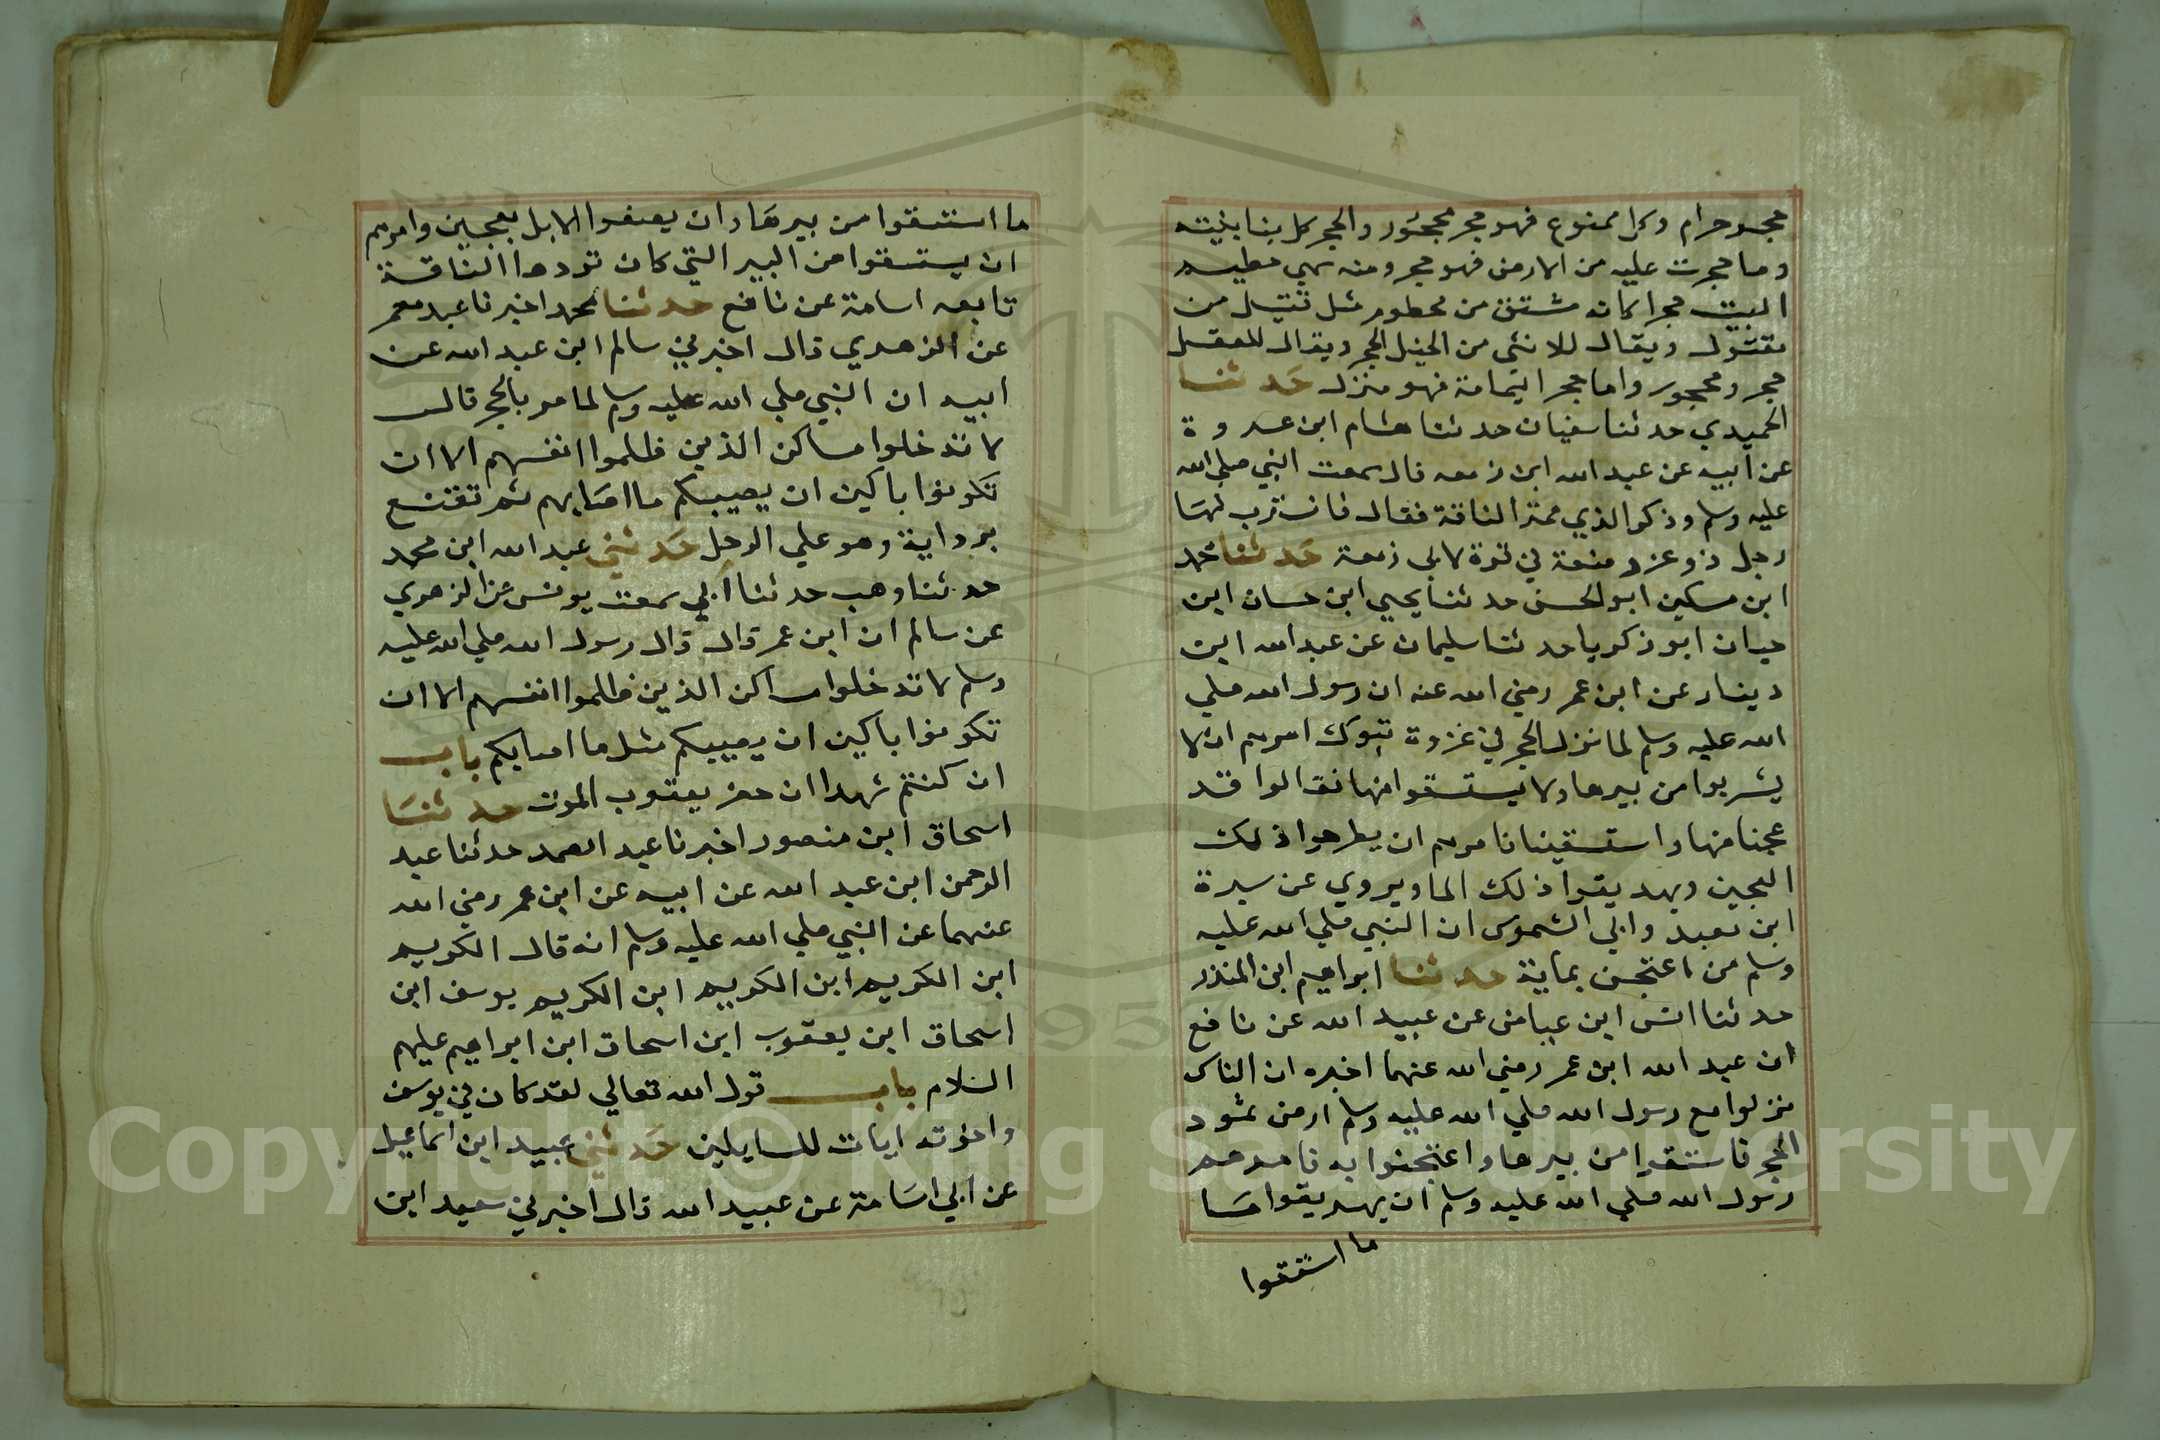 حجر حرام وكل ممنوع فهو حجر محجور والحجر كل بنا بنيته
وما حجرت عليه من الارض فهو حجر ومنه سمي حطيم
البيت حجرا كانه مشتق من محطوم مثل قتيل من
مقتول ويقال للانثى من الخيل الحجر ويقال للعقل
حجر ومحجور واما حجر اليمامة فهو منزل حدثنا
الحميدي حدثنا سفيان حدثنا هشام ابن عروة
عن ابيه عن عبد الله ابن زمعه قال سمعت النبي صلي الله
عليه وسلم وذكر الذي عقر الناقة فقال فانتدب لها
رجل ذو عز ومنعة في قوة كابي زمعة حدثنا محمد
ابن مسكين ابو الحسن حدثنا يحيي ابن حسان ابن
حيان ابو زكريا حدثنا سليمان عن عبد الله ابن
دينار عن ابن عمر رضي الله عنه ان رسول الله صلي
الله عليه وسلم لما نزل الحجر في غزوة تبوك امرهم ان لا
يشربوا من بيرها ولا يستقوا منها فقالوا قد
عجنا منها واستقينا فامرهم ان يطرحوا ذلك
العجين ويهريقوا ذلك الما ويروي عن سبرة
ابن معبد وابي الشموس ان النبي صلي الله عليه
وسلم من اعتجن بمايه حدثنا ابراهيم ابن المنذر
حدثنا انس ابن عياض عن عبيد الله عن نافع
ان عبد الله ابن عمر رضي الله عنهما اخبره ان الناس
نزلوا مع رسول الله صلي الله عليه وسلم ارض ثمود
الحجر فاستقوا من بيرها واعتجنوا به فامرهم
رسول الله صلي الله عليه وسلم ان يهريقوا ما
ما استقوا
ما استقوا من بيرها وان يعلفوا الابل العجين وامرهم
ان يستقوا من البير التي كان تردها الناقة
تابعه اسامة عن نافع حدثنا محمد اخبرنا عبد معمر
عن الزهري قال اخبرني سالم ابن عبد الله عن
ابيه ان النبي صلي الله عليه وسلم لما مر بالحجر قال
لا تدخلوا مساكن الذين ظلموا انفسهم الا ان
تكونوا باكين ان يصيبكم ما اصابهم ثم تقنع
بردايه وهو علي الرحل حدثني عبد الله ابن محمد
حدثنا وهب حدثنا ابي سمعت يونس عن الزهري
عن سالم ان ابن عمر قال قال رسول الله صلي الله عليه
وسلم لا تدخلوا مساكن الذين ظلموا انفسهم الا ان
تكونوا باكين ان يصيبكم مثل ما اصابكم باب
ان كنتم شهدا ان حضر يعقوب الموت حدثنا
اسحاق ابن منصور اخبرنا عبد الصمد حدثنا عبد
الرحمن ابن عبد الله عن ابيه عن ابن عمر رضي الله
عنهما عن النبي صلي الله عليه وسلم انه قال الكريم
ابن الكريم ابن الكريم ابن الكريم يوسف ابن
اسحاق ابن يعقوب ابن اسحاق ابن ابراهيم عليهم
السلام باب قول الله تعالي لقد كان في يوسف
واخوته ايات للسايلين حدثني عبيد ابن اسماعيل
عن ابي اسامة عن عبيد الله قال اخبرني سعيد ابن
Copyright © King Saud University